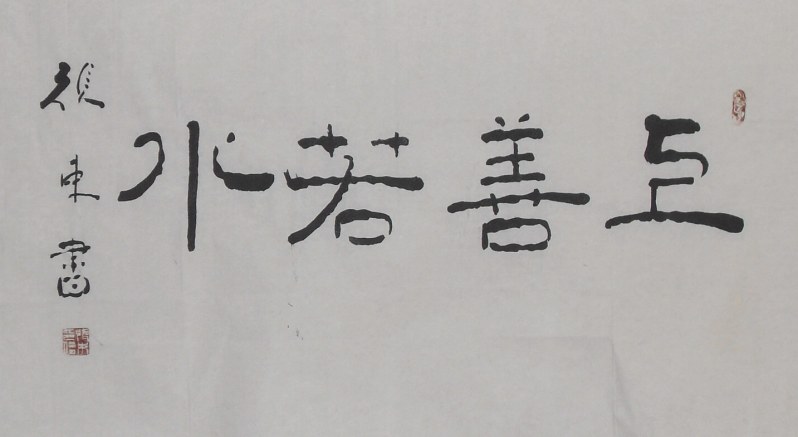 上善若水
東書